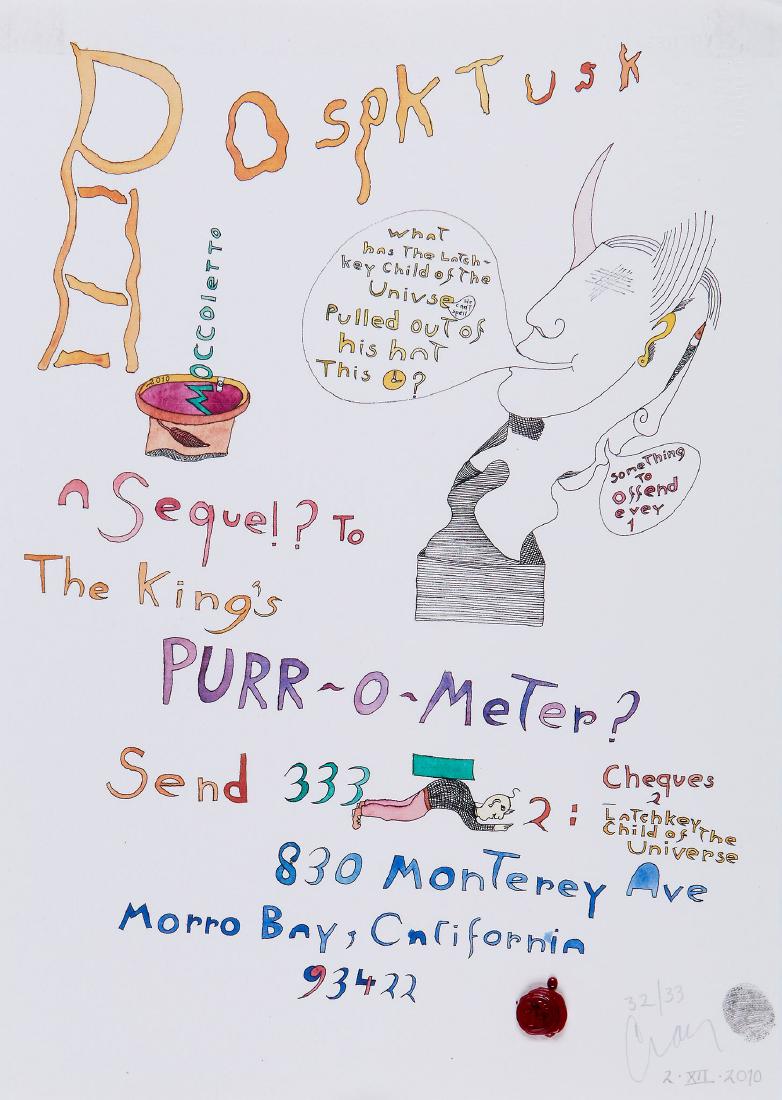 POspkTusk
MOCCOleTTO
2010
What
has The Latch-
key Child of The
Univse
He can't spell
Pulled out of
his hat
This ?
someThing
To
offend
evey
1
a Sequel!? To
The King's
PURR~O~MeTer?
Send 333 2:
Cheques
2
Latchkey
Child of The
Universe
830 MonTerey Ave
Morro Bay, California
93422
32/33
2·XII·2010